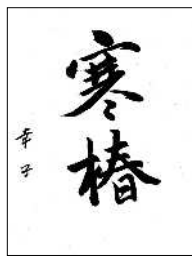 寒椿
幸子